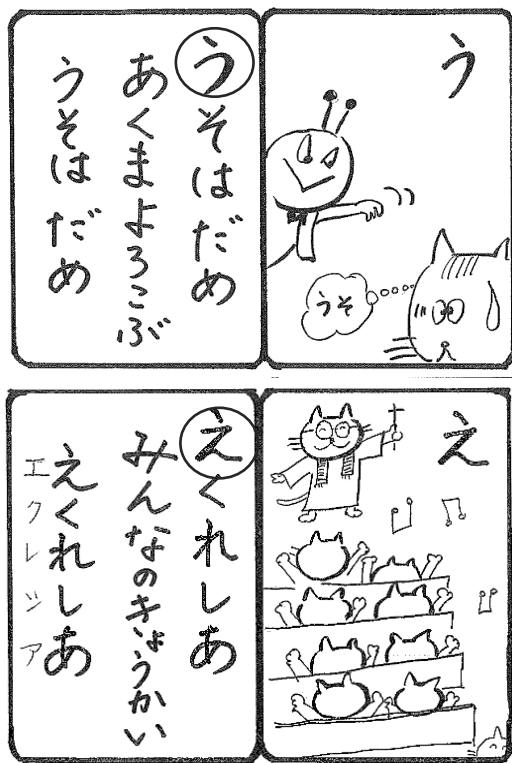 う
うそ
うそはだめ
あくまよろこぶ
うそはだめ
え
えくれしあ
みんなのきょうかい
えくれしあ
エクレシア